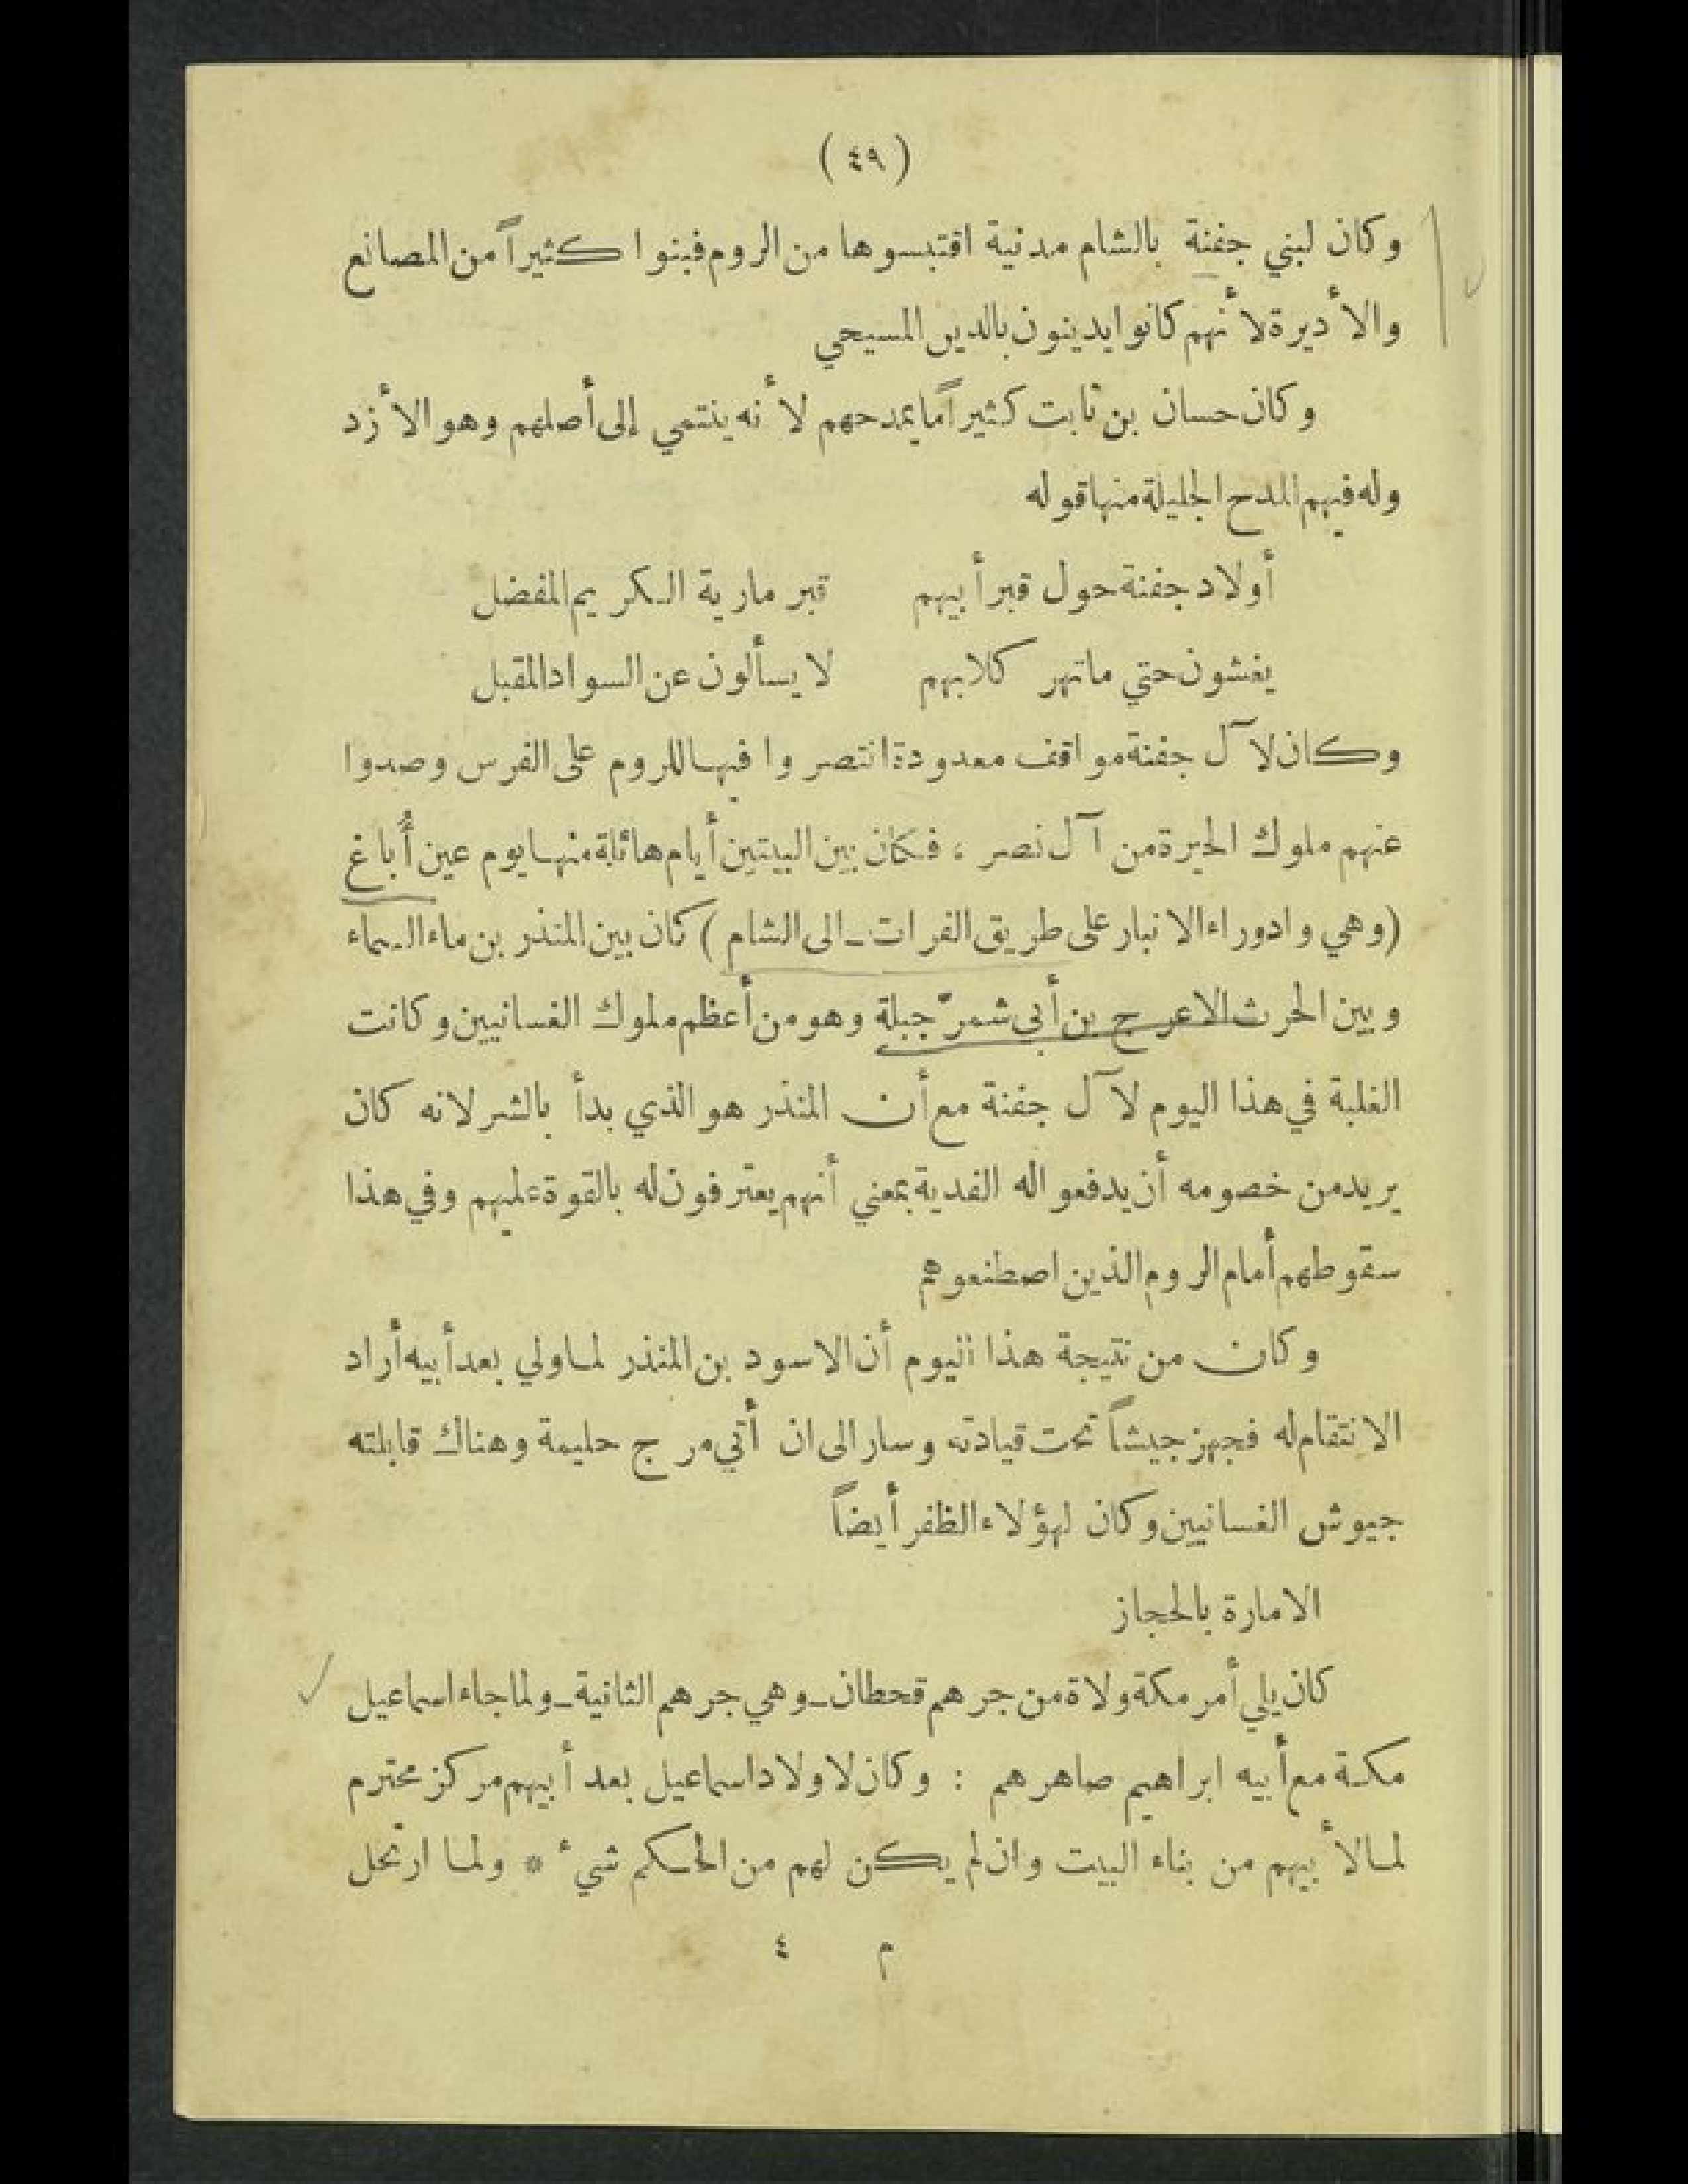 ( ٤٩ )
وكان لبني جفنة بالشام مدنية اقتبسوها من الروم فبنوا كثيراً من المصانع
والأديرة لأنهم كانوا يدينون بالدين المسيحي
وكان حسان بن ثابت كثيراً ما يمدحهم لأنه ينتمي إلى أصلهم وهو الأزد
وله فيهم المدح الجليلة منها قوله
أولاد جفنة حول قبر أبيهم قبر مارية الكريم المفضل
يغشون حتي ماتهر كلابهم لا يسألون عن السواد المقبل
وكان لآل جفنة مواقف معدودة انتصروا فيها للروم على الفرس وصدوا
عنهم ملوك الحيرة من آل نصر ، فكان بين البيتين أيام هائلة منها يوم عين أُباغ
(وهي وادوراء الانبار على طريق الفرات ـ الى الشام ) كان بين المنذر بن ماء السماء
وبين الحرث الاعرج بن أبي شمرّ جبلة وهو من أعظم ملوك الغسانيين وكانت
الغلبة في هذا اليوم لآل جفنة مع أن المنذر هو الذي بدأ بالشر لانه كان
يريد من خصومه أن يدفعوا له الفدية بمعني أنهم يعترفون له بالقوة عليهم وفي هذا
سقوطهم أمام الروم الذين اصطنعوهم
وكان من نتيجة هذا اليوم أن الاسود بن المنذر لما ولي بعد أبيه أراد
الانتقام له فجهز جيشاً تحت قيادته وسار الى ان أتي مرج حليمة وهناك قابلته
جيوش الغسانيين وكان لهؤلاء الظفر أيضاً
الامارة بالحجاز
كان يلي أمر مكة ولاة من جرهم قحطان ـ وهي جرهم الثانية ـ ولما جاء اسماعيل
مكة مع أبيه ابراهيم صاهرهم : وكان لاولاد اسماعيل بعد أبيهم مركز محترم
لما لأبيهم من بناء البيت وان لم يكن لهم من الحكم شيء * ولما ارتحل
م ٤